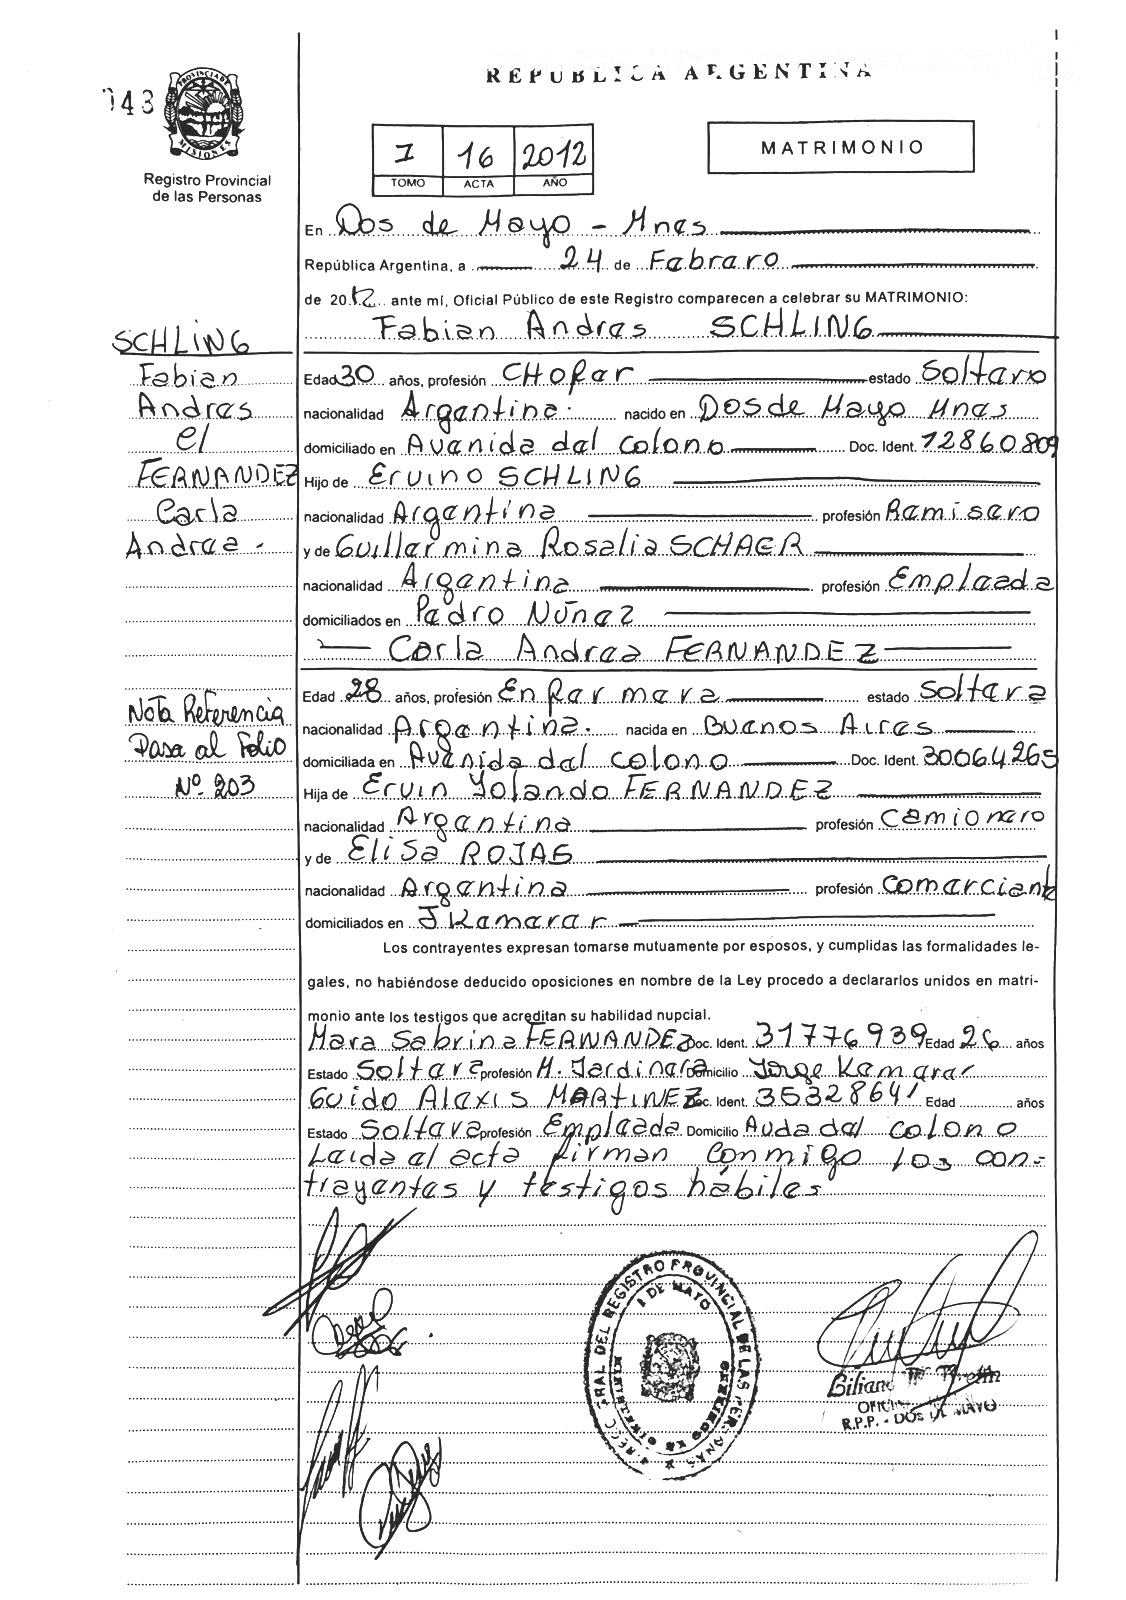 REPUBLICA ARGENTINA
043
PROVINCIA DE
MISIONES
Registro Provincial
de las Personas
I 16 2012
TOMO ACTA AÑO
MATRIMONIO
En Dos de Mayo - Mnes
República Argentina, a 24 de Febrero
de 2012 ante mí, Oficial Público de este Registro comparecen a celebrar su MATRIMONIO:
Fabian Andres SCHLING
Edad 30 años, profesión CHofer estado Soltero
nacionalidad Argentina. nacido en Dos de Mayo Mnes
domiciliado en Avenida del colono Doc. Ident. 12860809
Hijo de Ervino SCHLING
nacionalidad Argentina profesión Remisero
y de Guillermina Rosalia SCHAER
nacionalidad Argentina profesión Empleada
domiciliados en Pedro Núñez
Carla Andrea FERNANDEZ
Edad 28 años, profesión Enfermera estado Soltera
nacionalidad Argentina. nacida en Buenos Aires
domiciliada en Avenida del colono Doc. Ident. 30064265
Hija de Ervin Yolando FERNANDEZ
nacionalidad Argentina profesión Camionero
y de Elisa ROJAS
nacionalidad Argentina profesión Comerciante
domiciliados en J Kemerer
Los contrayentes expresan tomarse mutuamente por esposos, y cumplidas las formalidades le-
gales, no habiéndose deducido oposiciones en nombre de la Ley procedo a declararlos unidos en matri-
monio ante los testigos que acreditan su habilidad nupcial.
Mara Sabrina FERNANDEZ Doc. Ident. 31776939 Edad 26 años
Estado Soltera profesión M. Jardinera Domicilio Jorge Kemerer
Guido Alexis MARTINEZ Doc. Ident. 35328641 Edad años
Estado Soltera profesión Empleada Domicilio Avda del colono
Leida el acta firman conmigo los con-
trayentes y testigos hábiles
SCHLING
Fabian
Andres
el
FERNANDEZ
Carla
Andrea -
Nota Referencia
Pasa al Folio
Nº 203
GRAL DEL REGISTRO PROVINCIAL DE LAS PERSONAS
DE MAYO
R.P.P. - DOS DE MAYO